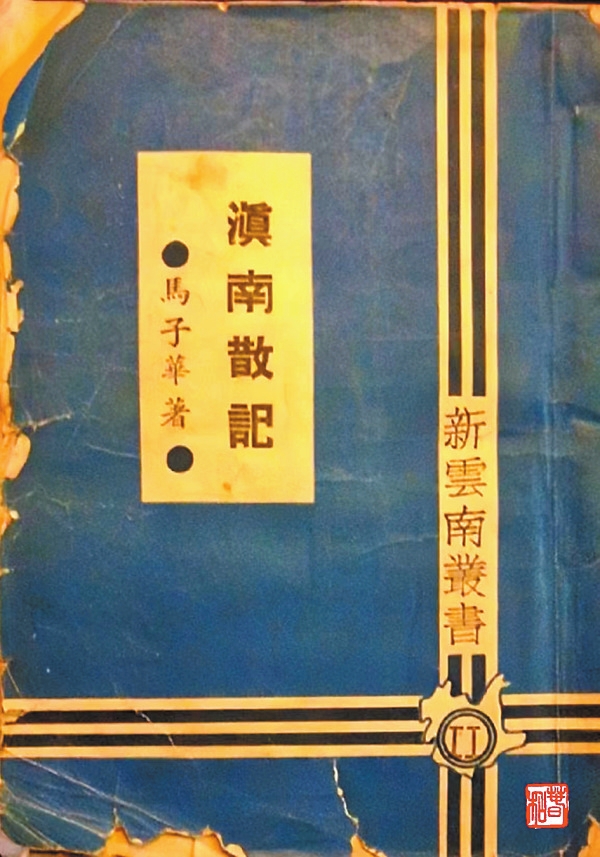 滇南散記
馬子華著
新雲南叢書
II